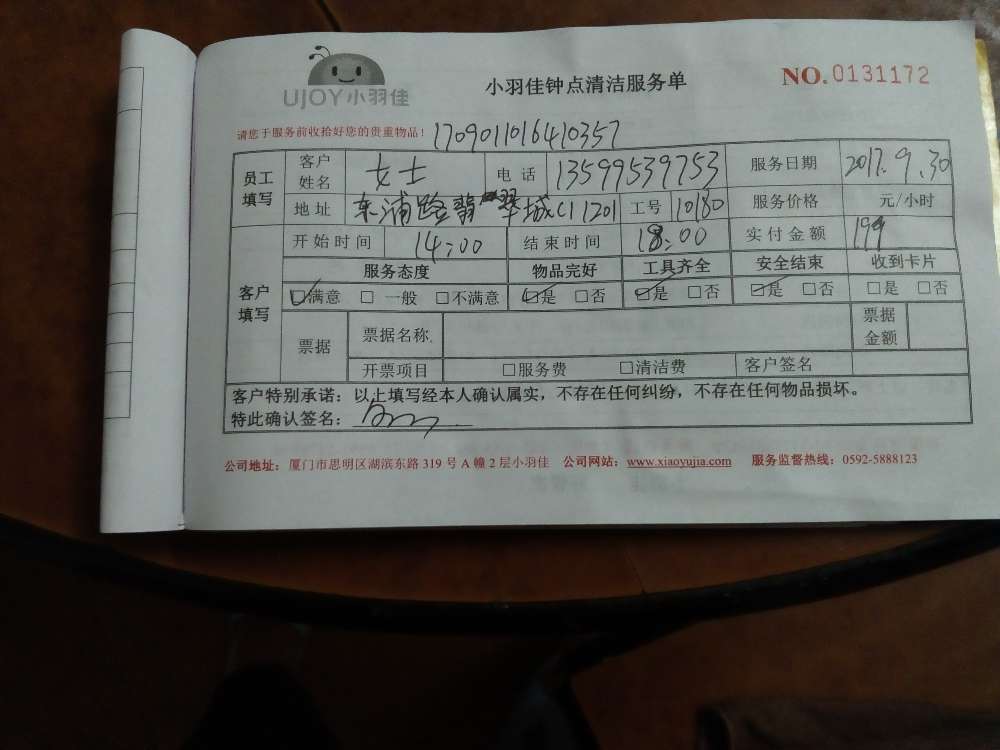 UJOY小羽佳
小羽佳钟点清洁服务单
NO.0131172
请您于服务前收拾好您的贵重物品! 1709011016410357
员工填写 客户姓名 女士 电话 13599539753 服务日期 2017.9.30
地址 东浦路翡翠城C1 1201 工号 10180 服务价格 元/小时
客户填写 开始时间 14:00 结束时间 18:00 实付金额 199
服务态度 物品完好 工具齐全 安全结束 收到卡片
☑满意 □ 一般 □不满意 ☑是 □否 ☑是 □否 ☑是 □否 □是 □否
票据 票据名称 票据金额
开票项目 □服务费 □清洁费 客户签名
客户特别承诺：以上填写经本人确认属实，不存在任何纠纷，不存在任何物品损坏。
特此确认签名：
公司地址：厦门市思明区湖滨东路 319 号 A 幢 2 层小羽佳 公司网站：www.xiaoyujia.com 服务监督热线：0592-5888123